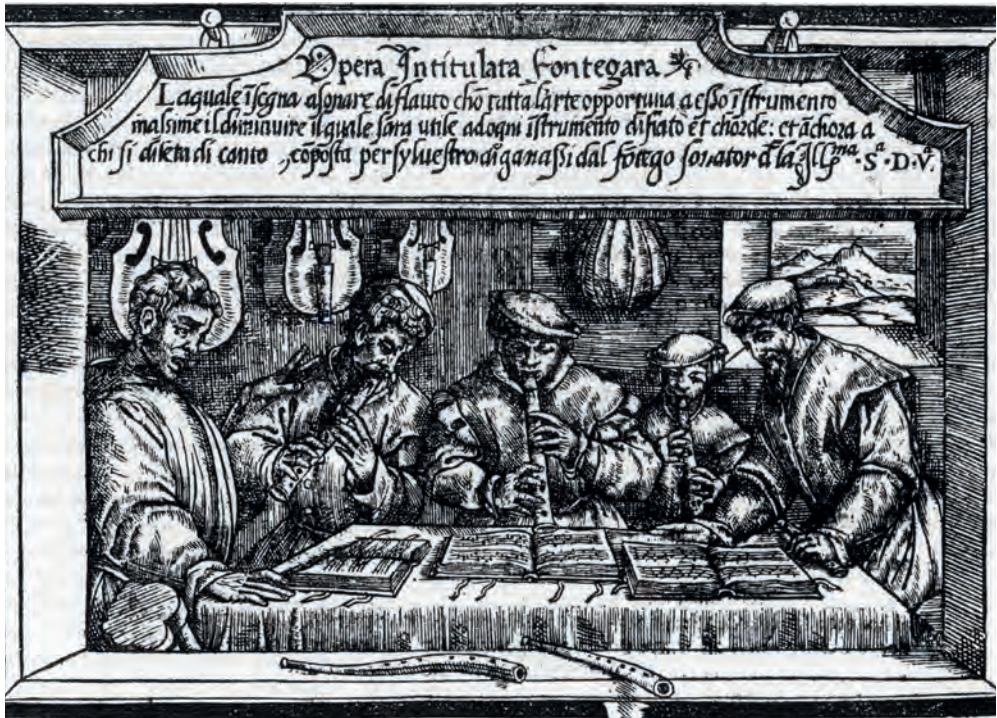 Opera Intitulata Fontegara
Laquale īsegna a sonare di flauto chō tutta l'arte opportuna a esso īstrumento
massime il diminuire il quale sara utile ad ogni īstrumento di fiato et chorde: et āchora a
chi si dileta di canto, cōposta per sylvestro di ganassi dal fōtego sonator d̄ la Ill.ma S.a D.V.a